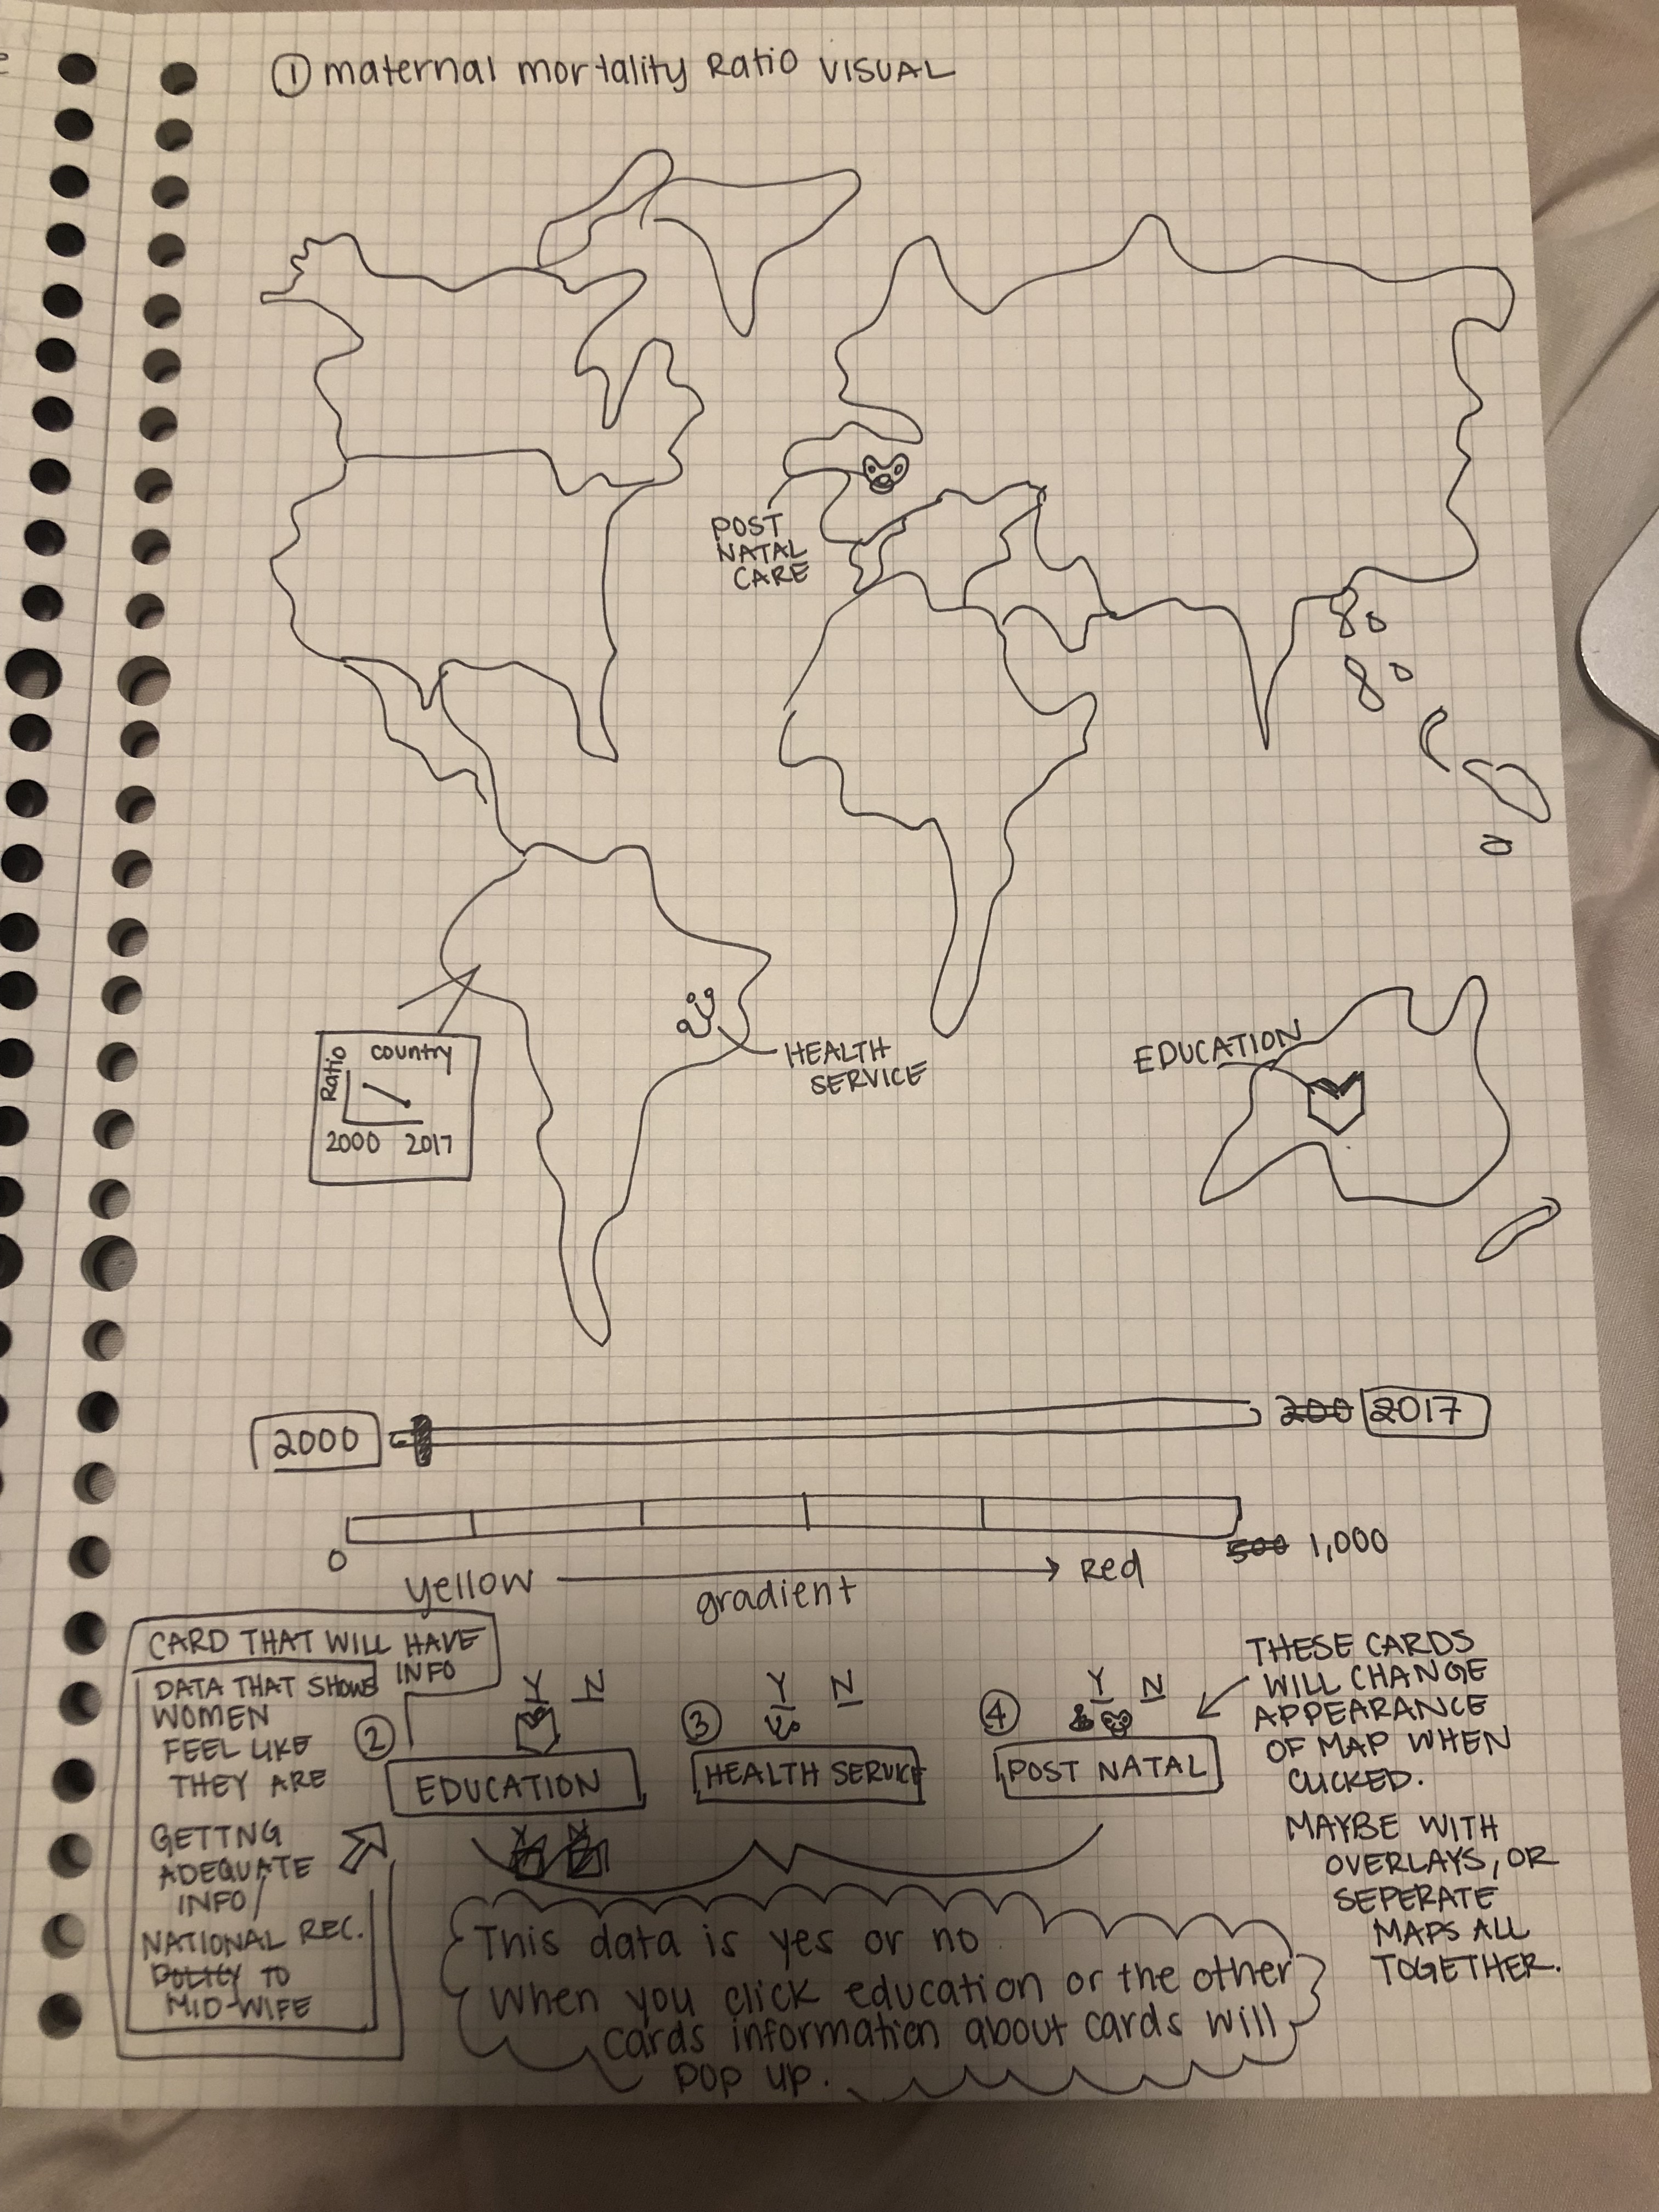 ① maternal mortality Ratio VISUAL
POST
NATAL
CARE
Ratio
country
2000 2017
HEALTH
SERVICE
EDUCATION
2000
200 2017
0
500 1,000
yellow → Red
gradient
CARD THAT WILL HAVE
INFO
DATA THAT SHOWS
WOMEN
FEEL LIKE
THEY ARE
GETTNG
ADEQUATE
INFO/
NATIONAL REC.
POLICY TO
MID-WIFE
② Y N
EDUCATION
Y N
③ Y N
HEALTH SERVICE
④ Y N
POST NATAL
THESE CARDS
WILL CHANGE
APPEARANCE
OF MAP WHEN
CLICKED.
MAYBE WITH
OVERLAYS, OR
SEPERATE
MAPS ALL
TOGETHER.
This data is yes or no
When you click education or the other
cards information about cards will
pop up.